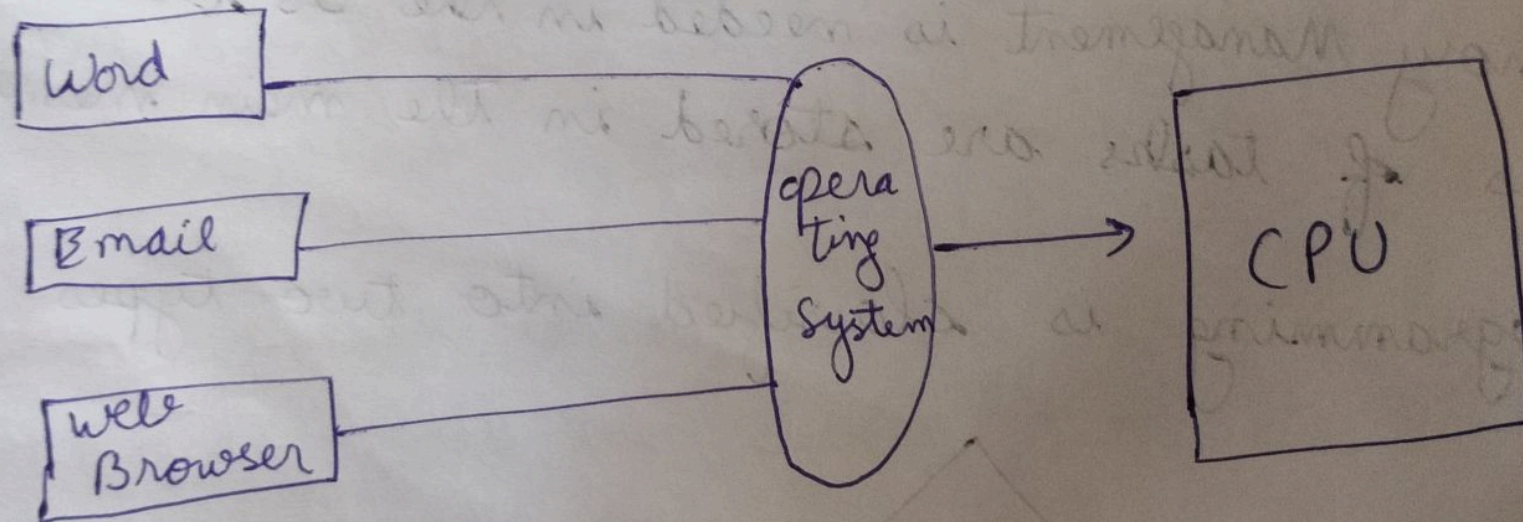 Word
Email
Web
Browser
opera
ting
System
CPU